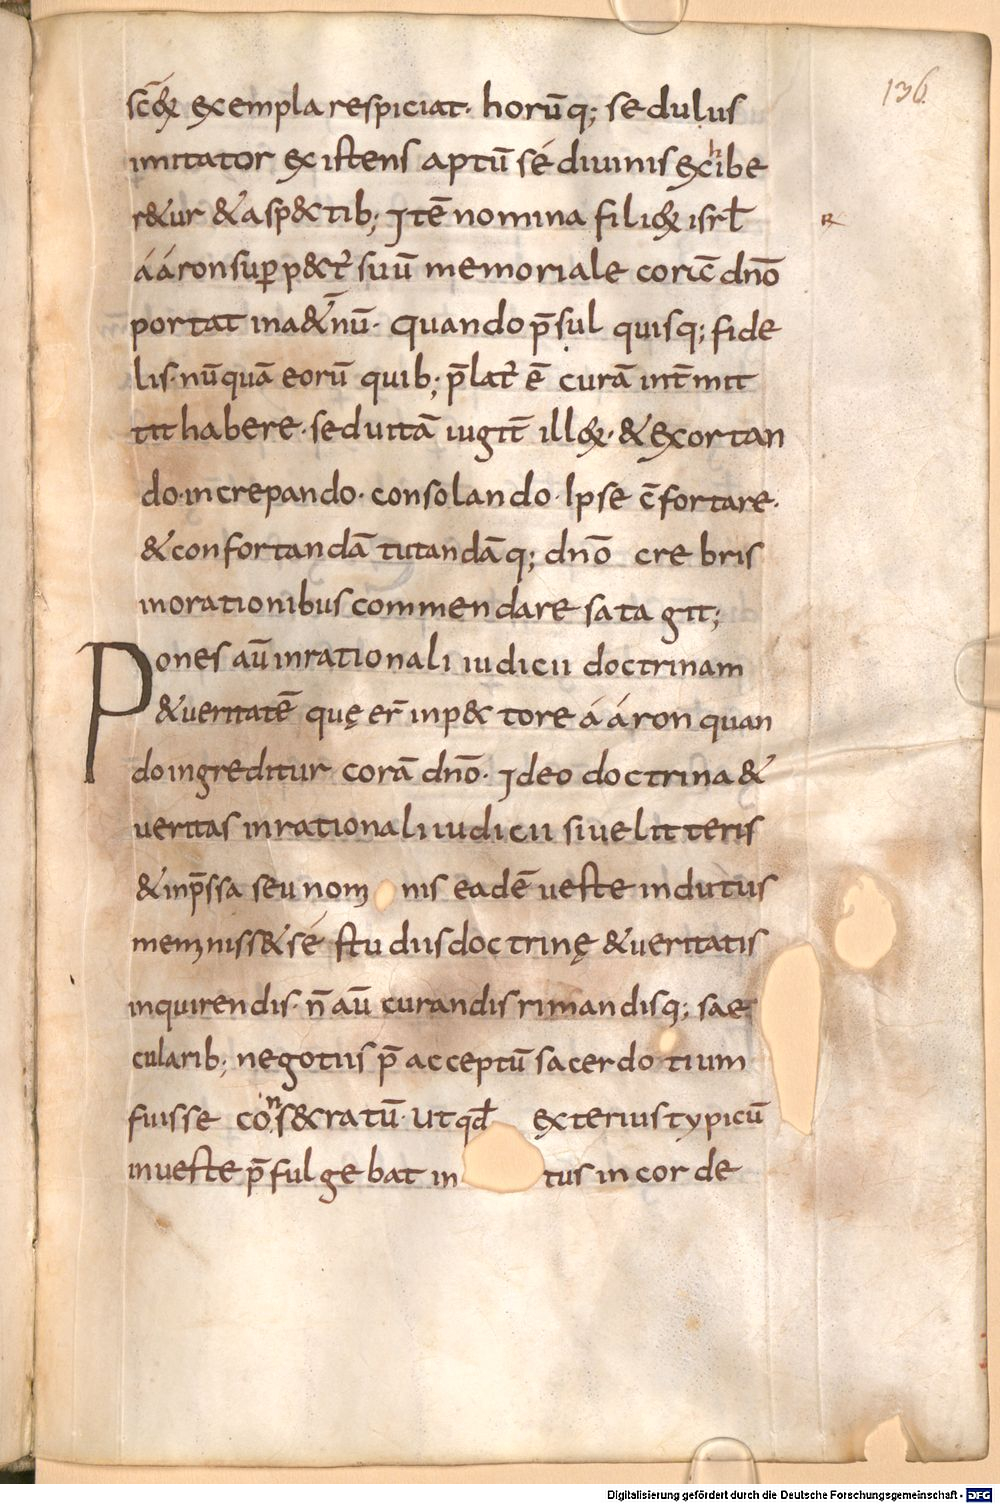 136
scōꝝ exempla respiciat· horūq; sedulus
imitator existens aptū sé diuinis exhibe
r&ur & asp&tib; Itē nomina filioꝝ isrl̄
ááron sup̱ p&t᷒ suū memoriale corā dnō
portat in a&ernū· quando p̄sul quisq; fide
lis· nūquā eorū quib; p̄lat᷒ ē curā int̄mit
tit habere· sed uitā iugit̄ illoꝝ· & exortan
do· increpando· consolando· Ipse c̄fortare·
& confortandā tutandāq; dnō crebris
in orationibus commendare satagit;
Pones aū in rationali iudicii doctrinam
& ueritatē quę er̄ in p&tore ááron quan
do ingreditur corā dnō· Ideo doctrina &
ueritas in rationali iudicii siue litteris
& inp̄ssa seu nominis eadē ueste indutus
meminiss& sé studiis doctrinę & ueritatis
inquirendis· n̄ aū curandis rimandisq; sae
cularib; negotiis p̄ acceptū sacerdotium
fuisse cons&ratū· Ut qd̄ exterius typicū
in ueste p̄fulgebat intus in corde
Digitalisierung gefördert durch die Deutsche Forschungsgemeinschaft - DFG